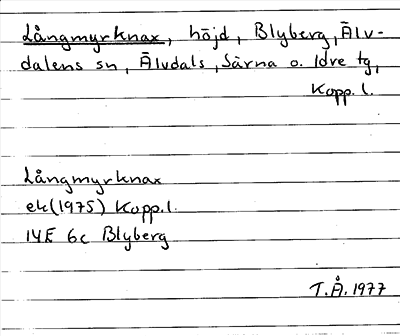 Långmyrknax, höjd, Blyberg, Älv-
dalens sn, Älvdals, Särna o. Idre tg,
Kopp. l.
Långmyrknax
ek(1975) Kopp.l.
14E 6c Blyberg
T.Å. 1977